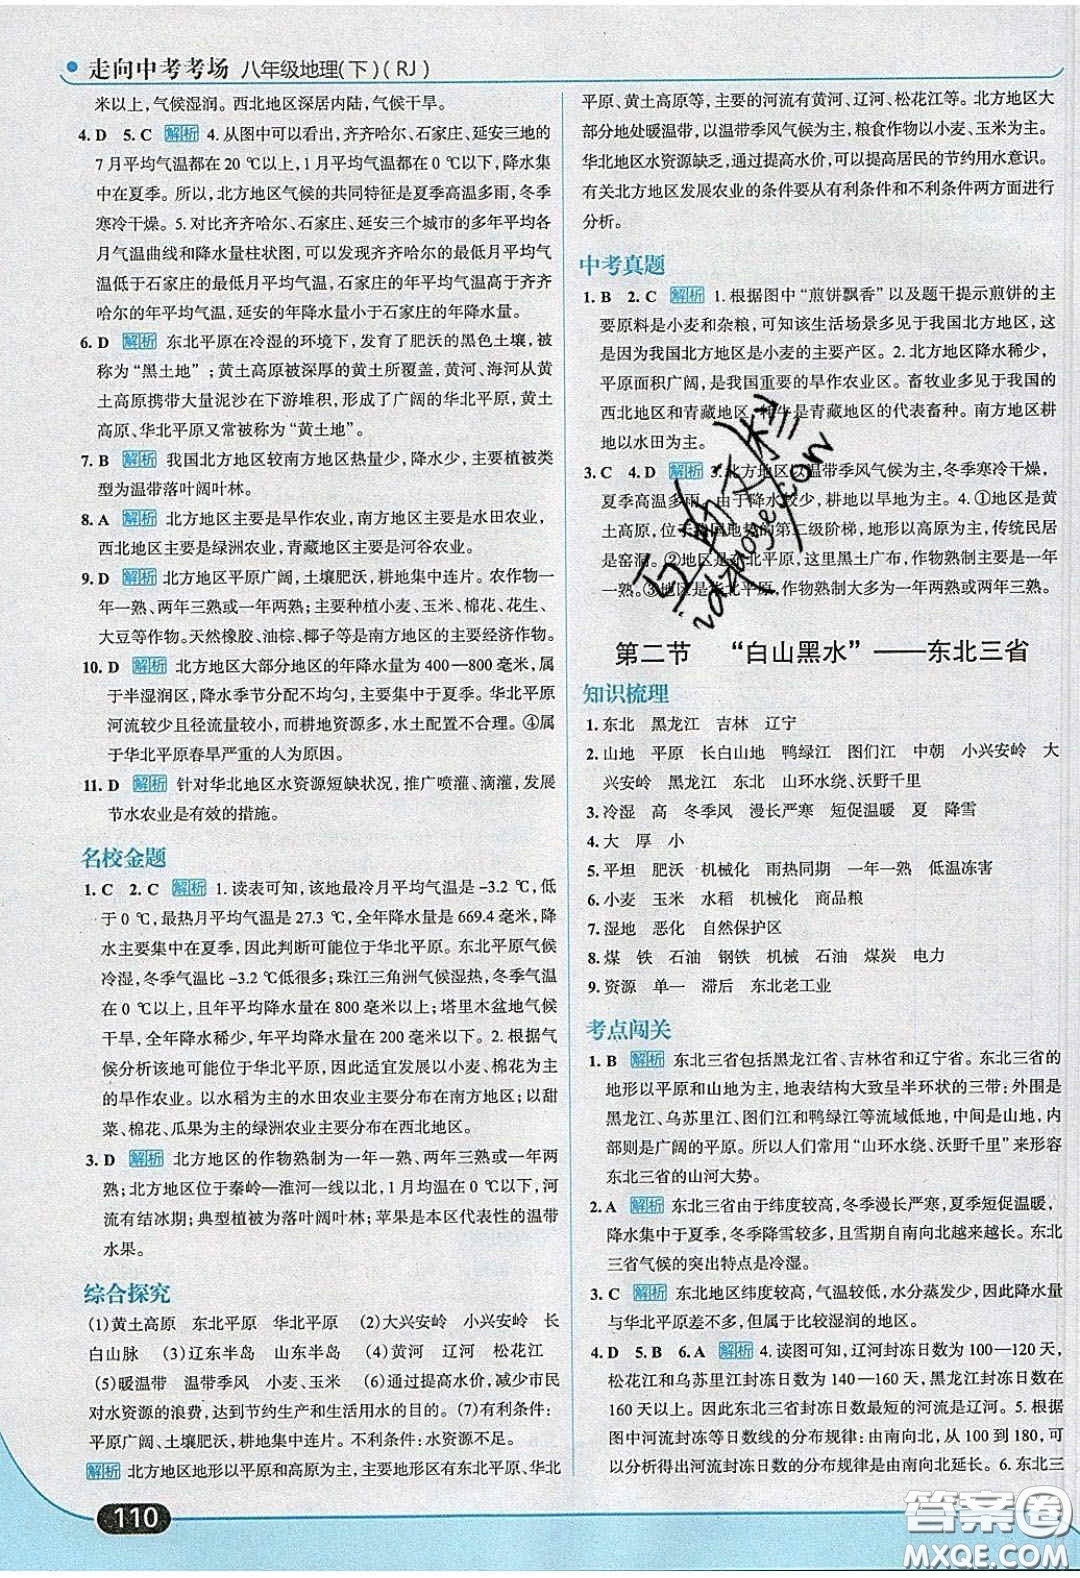 走向中考考场 八年级地理(下)(RJ)
米以上,气候湿润。西北地区深居内陆,气候干旱。
4. D 5. C 解析 4. 从图中可以看出,齐齐哈尔、石家庄、延安三地的
7月平均气温都在20 ℃以上,1月平均气温都在0 ℃以下,降水集
中在夏季。所以,北方地区气候的共同特征是夏季高温多雨,冬季
寒冷干燥。5. 对比齐齐哈尔、石家庄、延安三个城市的多年平均各
月气温曲线和降水量柱状图,可以发现齐齐哈尔的最低月平均气
温低于石家庄的最低月平均气温,石家庄的年平均气温高于齐齐
哈尔的年平均气温,延安的年降水量小于石家庄的年降水量。
6. D 解析 东北平原在冷湿的环境下,发育了肥沃的黑色土壤,被
称为“黑土地”;黄土高原被深厚的黄土所覆盖,黄河、海河从黄土
高原携带大量泥沙在下游堆积,形成了广阔的华北平原,黄土高
原、华北平原又常被称为“黄土地”。
7. B 解析 我国北方地区较南方地区热量少,降水少,主要植被类
型为温带落叶阔叶林。
8. A 解析 北方地区主要是旱作农业,南方地区主要是水田农业,
西北地区主要是绿洲农业,青藏地区主要是河谷农业。
9. D 解析 北方地区平原广阔,土壤肥沃,耕地集中连片。农作物
一年一熟、两年三熟或一年两熟;主要种植小麦、玉米、棉花、花生、
大豆等作物。天然橡胶、油棕、椰子等是南方地区的主要经济作物。
10. D 解析 北方地区大部分地区的年降水量为400—800毫米,属
于半湿润区,降水季节分配不均匀,主要集中在夏季。华北平原
河流较少且径流量较小,而耕地资源多,水土配置不合理。④属
于华北平原春旱严重的人为原因。
11. D 解析 针对华北地区水资源短缺状况,推广喷灌、滴灌,发展
节水农业是有效的措施。
名校金题
1. C 2. C 解析 1. 读表可知,该地最冷月平均气温是-3.2 ℃,低
于0 ℃,最热月平均气温是27.3 ℃,全年降水量是669.4毫米,降
水主要集中在夏季,因此判断可能位于华北平原。东北平原气候
冷湿,冬季气温比-3.2 ℃低很多;珠江三角洲气候湿热,冬季气温
在0 ℃以上,且年平均降水量在800毫米以上;塔里木盆地气候
干旱,全年降水稀少,年平均降水量在200毫米以下。2. 根据气
候分析该地可能位于华北平原,因此适宜发展以小麦、棉花为主
的旱作农业。以水稻为主的水田农业主要分布在南方地区;以甜
菜、棉花、瓜果为主的绿洲农业主要分布在西北地区。
3. D 解析 北方地区的作物熟制为一年一熟、两年三熟或一年两
熟;北方地区位于秦岭—淮河一线以北,1月平均气温在0 ℃以下,河
流有结冰期;典型植被为落叶阔叶林;苹果是本区代表性的温带
水果。
综合探究
(1)黄土高原 东北平原 华北平原 (2)大兴安岭 小兴安岭 长
白山脉 (3)辽东半岛 山东半岛 (4)黄河 辽河 松花江
(5)暖温带 温带季风 小麦、玉米 (6)通过提高水价,减少市民
对水资源的浪费,达到节约生产和生活用水的目的。(7)有利条件:
平原广阔、土壤肥沃,耕地集中连片。不利条件:水资源不足。
解析 北方地区地形以平原和高原为主,主要地形区有东北平原、华北
平原、黄土高原等,主要的河流有黄河、辽河、松花江等。北方地区大
部分地处暖温带,以温带季风气候为主,粮食作物以小麦、玉米为主。
华北地区水资源缺乏,通过提高水价,可以提高居民的节约用水意识。
有关北方地区发展农业的条件要从有利条件和不利条件两方面进行
分析。
中考真题
1. B 2. C 解析 1. 根据图中“煎饼飘香”以及题干提示煎饼的主
要原料是小麦和杂粮,可知该生活场景多见于我国北方地区,这
是因为我国北方地区是小麦的主要产区。2. 北方地区降水稀少,
平原面积广阔,是我国重要的旱作农业区。畜牧业多见于我国的
西北地区和青藏地区,牦牛是青藏地区的代表畜种。南方地区耕
地以水田为主。
3. C 4. D 解析 3. 北方地区以温带季风气候为主,冬季寒冷干燥,
夏季高温多雨。由于降水较少,耕地以旱地为主。4. ①地区是黄
土高原,位于我国地势的第二级阶梯,地形以高原为主,传统民居
是窑洞。②地区是东北平原,这里黑土广布,作物熟制主要是一年
一熟。③地区是华北平原,作物熟制大多为一年两熟或两年三熟。
第二节 “白山黑水”——东北三省
知识梳理
1. 东北 黑龙江 吉林 辽宁
2. 山地 平原 长白山地 鸭绿江 图们江 中朝 小兴安岭 大
兴安岭 黑龙江 东北 山环水绕,沃野千里
3. 冷湿 高 冬季风 漫长严寒 短促温暖 夏 降雪
4. 大 厚 小
5. 平坦 肥沃 机械化 雨热同期 一年一熟 低温冻害
6. 小麦 玉米 水稻 机械化 商品粮
7. 湿地 恶化 自然保护区
8. 煤 铁 石油 钢铁 机械 石油 煤炭 电力
9. 资源 单一 滞后 东北老工业
考点闯关
1. B 解析 东北三省包括黑龙江省、吉林省和辽宁省。东北三省的
地形以平原和山地为主,地表结构大致呈半环状的三带:外围是
黑龙江、乌苏里江、图们江和鸭绿江等流域低地,中间是山地,内
部则是广阔的平原。所以人们常用“山环水绕、沃野千里”来形容
东北三省的山河大势。
2. A 解析 东北三省由于纬度较高,冬季漫长严寒,夏季短促温暖,
降水集中于夏季,冬季降雪较多,且雪期自南向北越来越长。东北
三省气候的突出特点是冷湿。
3. C 解析 东北地区纬度较高,气温较低,水分蒸发少,因此降水量
与华北平原差不多,但属于比较湿润的地区。
4. D 5. B 6. A 解析 4. 读图可知,辽河封冻日数为100—120天,
松花江和乌苏里江封冻日数为140—160天,黑龙江封冻日数为
160天以上。因此东北三省封冻日数最短的河流是辽河。5. 根据
图中河流封冻等日数线的分布规律:由南向北,从100到180,可
以分析得出河流封冻日数的分布规律是由南向北延长。6. 东北三
110
答案圈
MXQE.COM